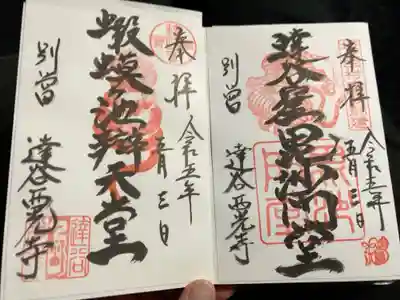 奉拝
令和五年
五月三日
達谷窟毘沙門堂
別當
達谷西光寺
奉拝
令和五年
五月三日
蝦蟆池辯天堂
別當
達谷西光寺